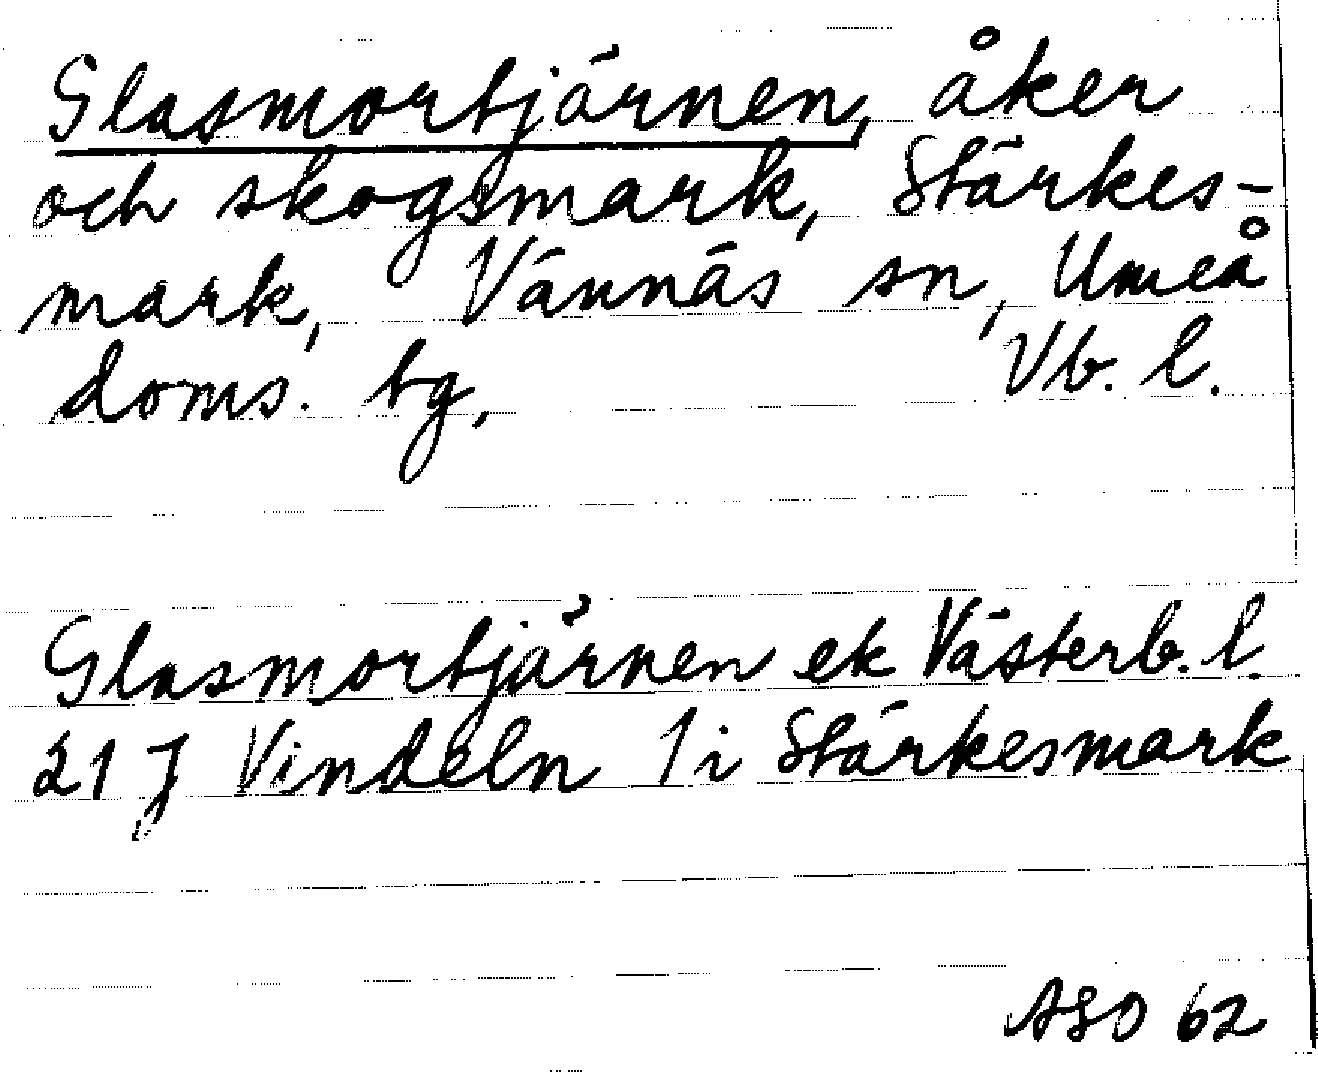 Glasmortjärnen, åker
och skogsmark, Stärkes-
mark, Vännäs sn, Umeå
doms. tg, Vb. l.
Glasmortjärnen ek Västerb. l.
21 J Vindeln 1 i Stärkesmark
ASO 62